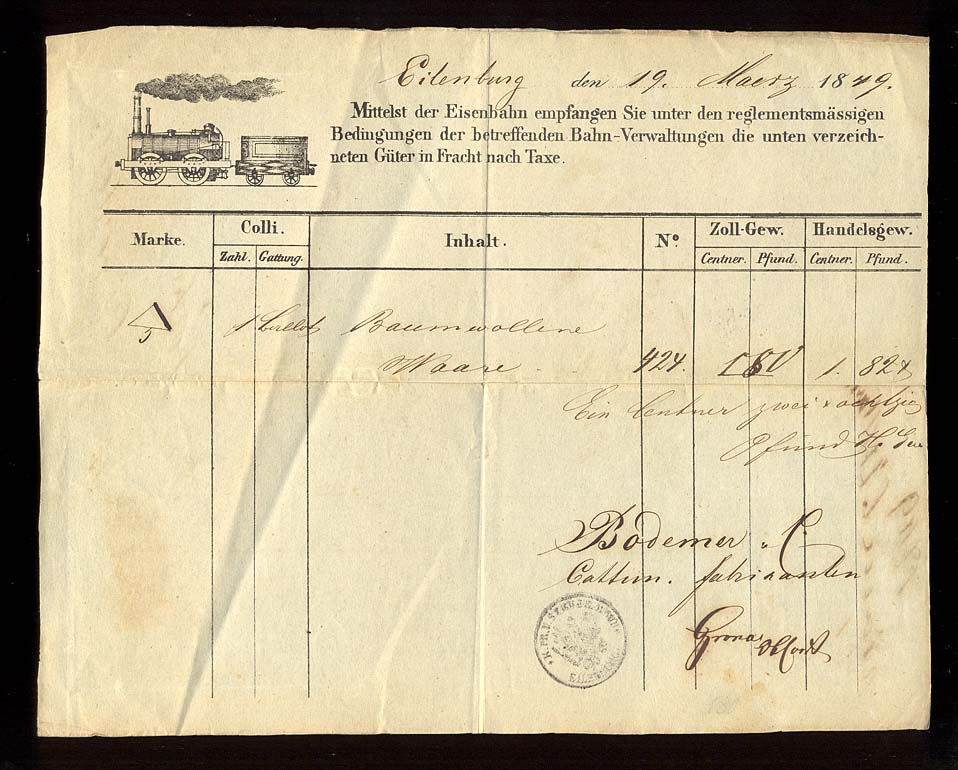 Eilenburg den 19. Maerz 1849.
Mittelst der Eisenbahn empfangen Sie unter den reglementsmässigen
Bedingungen der betreffenden Bahn-Verwaltungen die unten verzeich-
neten Güter in Fracht nach Taxe.
Marke. Colli. Inhalt. No. Zoll-Gew. Handelsgew.
Zahl. Gattung. Centner. Pfund. Centner. Pfund.
5 1 Baumwollene
Waare 424. 1. 82
Ein Centner zwei & achtzig
Pfund H.
Bodemer & C.
Cattun. fabrikanten